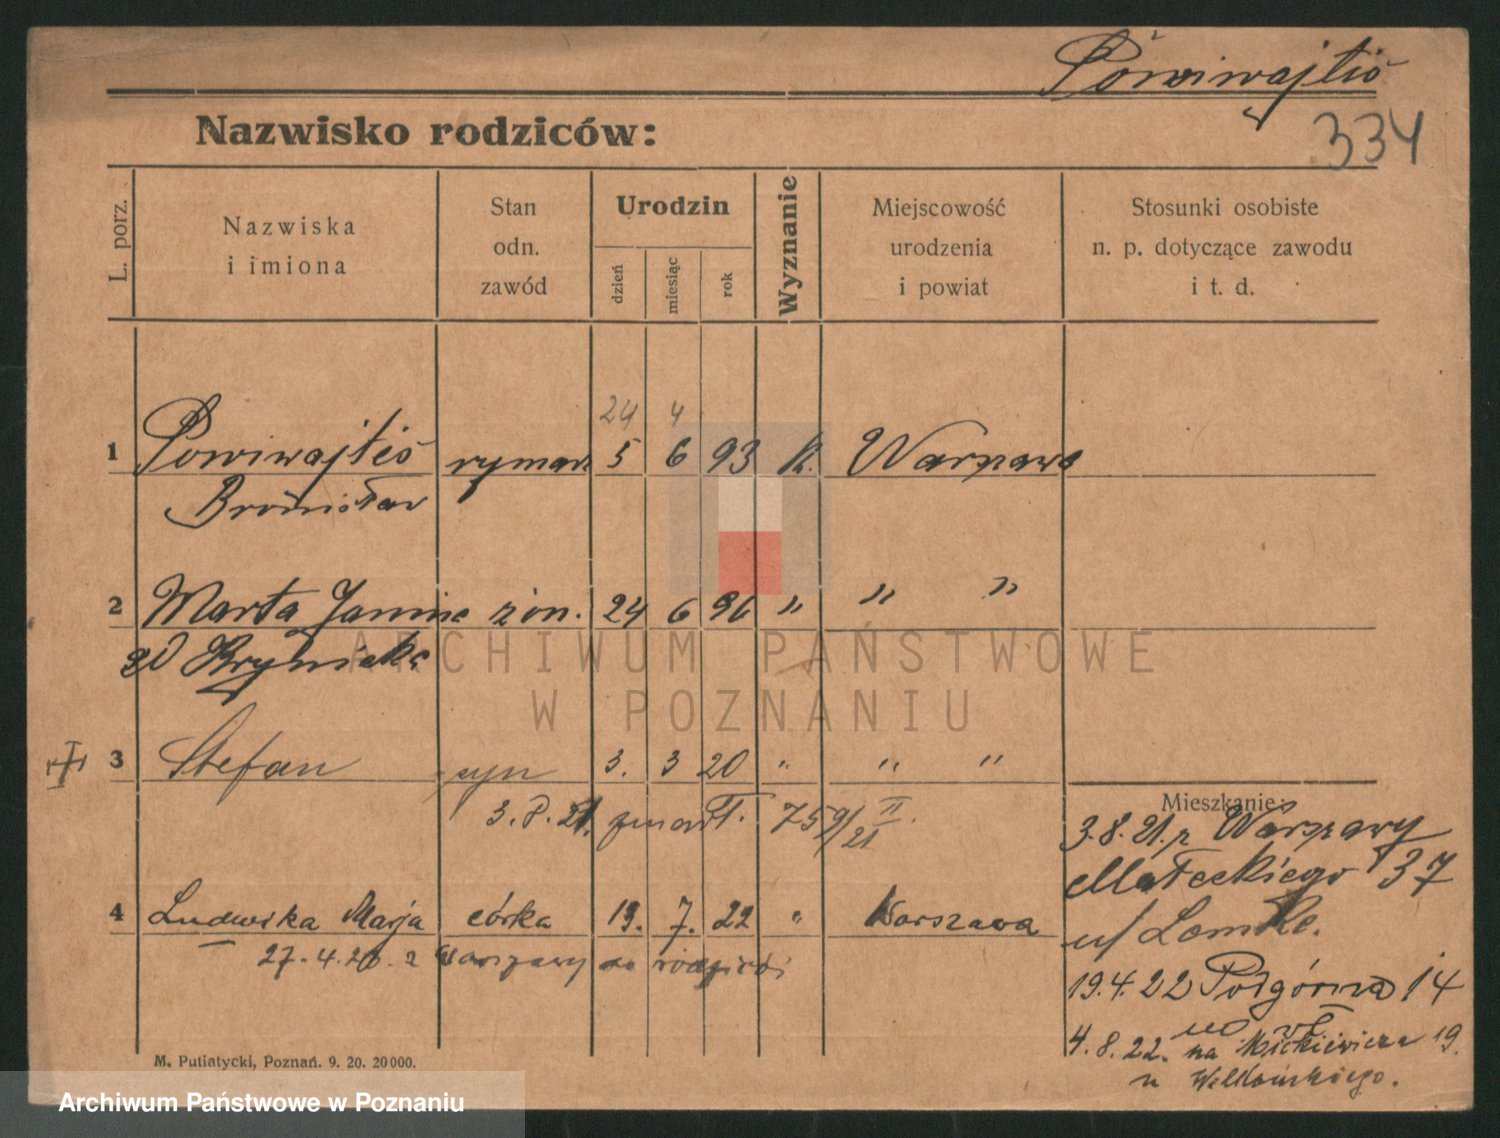 Powiwajtis
334
Nazwisko rodziców:
L. porz.
Nazwiska
i imiona
Stan
odn.
zawód
Urodzin
dzień
miesiąc
rok
Wyznanie
Miejscowość
urodzenia
i powiat
Stosunki osobiste
n. p. dotyczące zawodu
i t. d.
24 4
1 Powiwajtis rymarz 5 6 93 k. Warszawa
Bronisław
2 Marta Janina żon. 24 6 96 " " "
3 Stefan syn 3. 3 20 " " "
3. 8. 21. zmarł. 759/21 II.
4 Ludwika Marja córka 19. 7. 22 " Warszawa
27. 4. 26. z Warszawy do
Mieszkanie:
3.8.21. z Warszawy
Małeckiego 37
u/
19.4.22 Podgórna 14
4.8.22. na Mickiewicza 19.
u
M. Putiatycki, Poznań. 9. 20. 20000.
ARCHIWUM PAŃSTWOWE
W POZNANIU
Archiwum Państwowe w Poznaniu